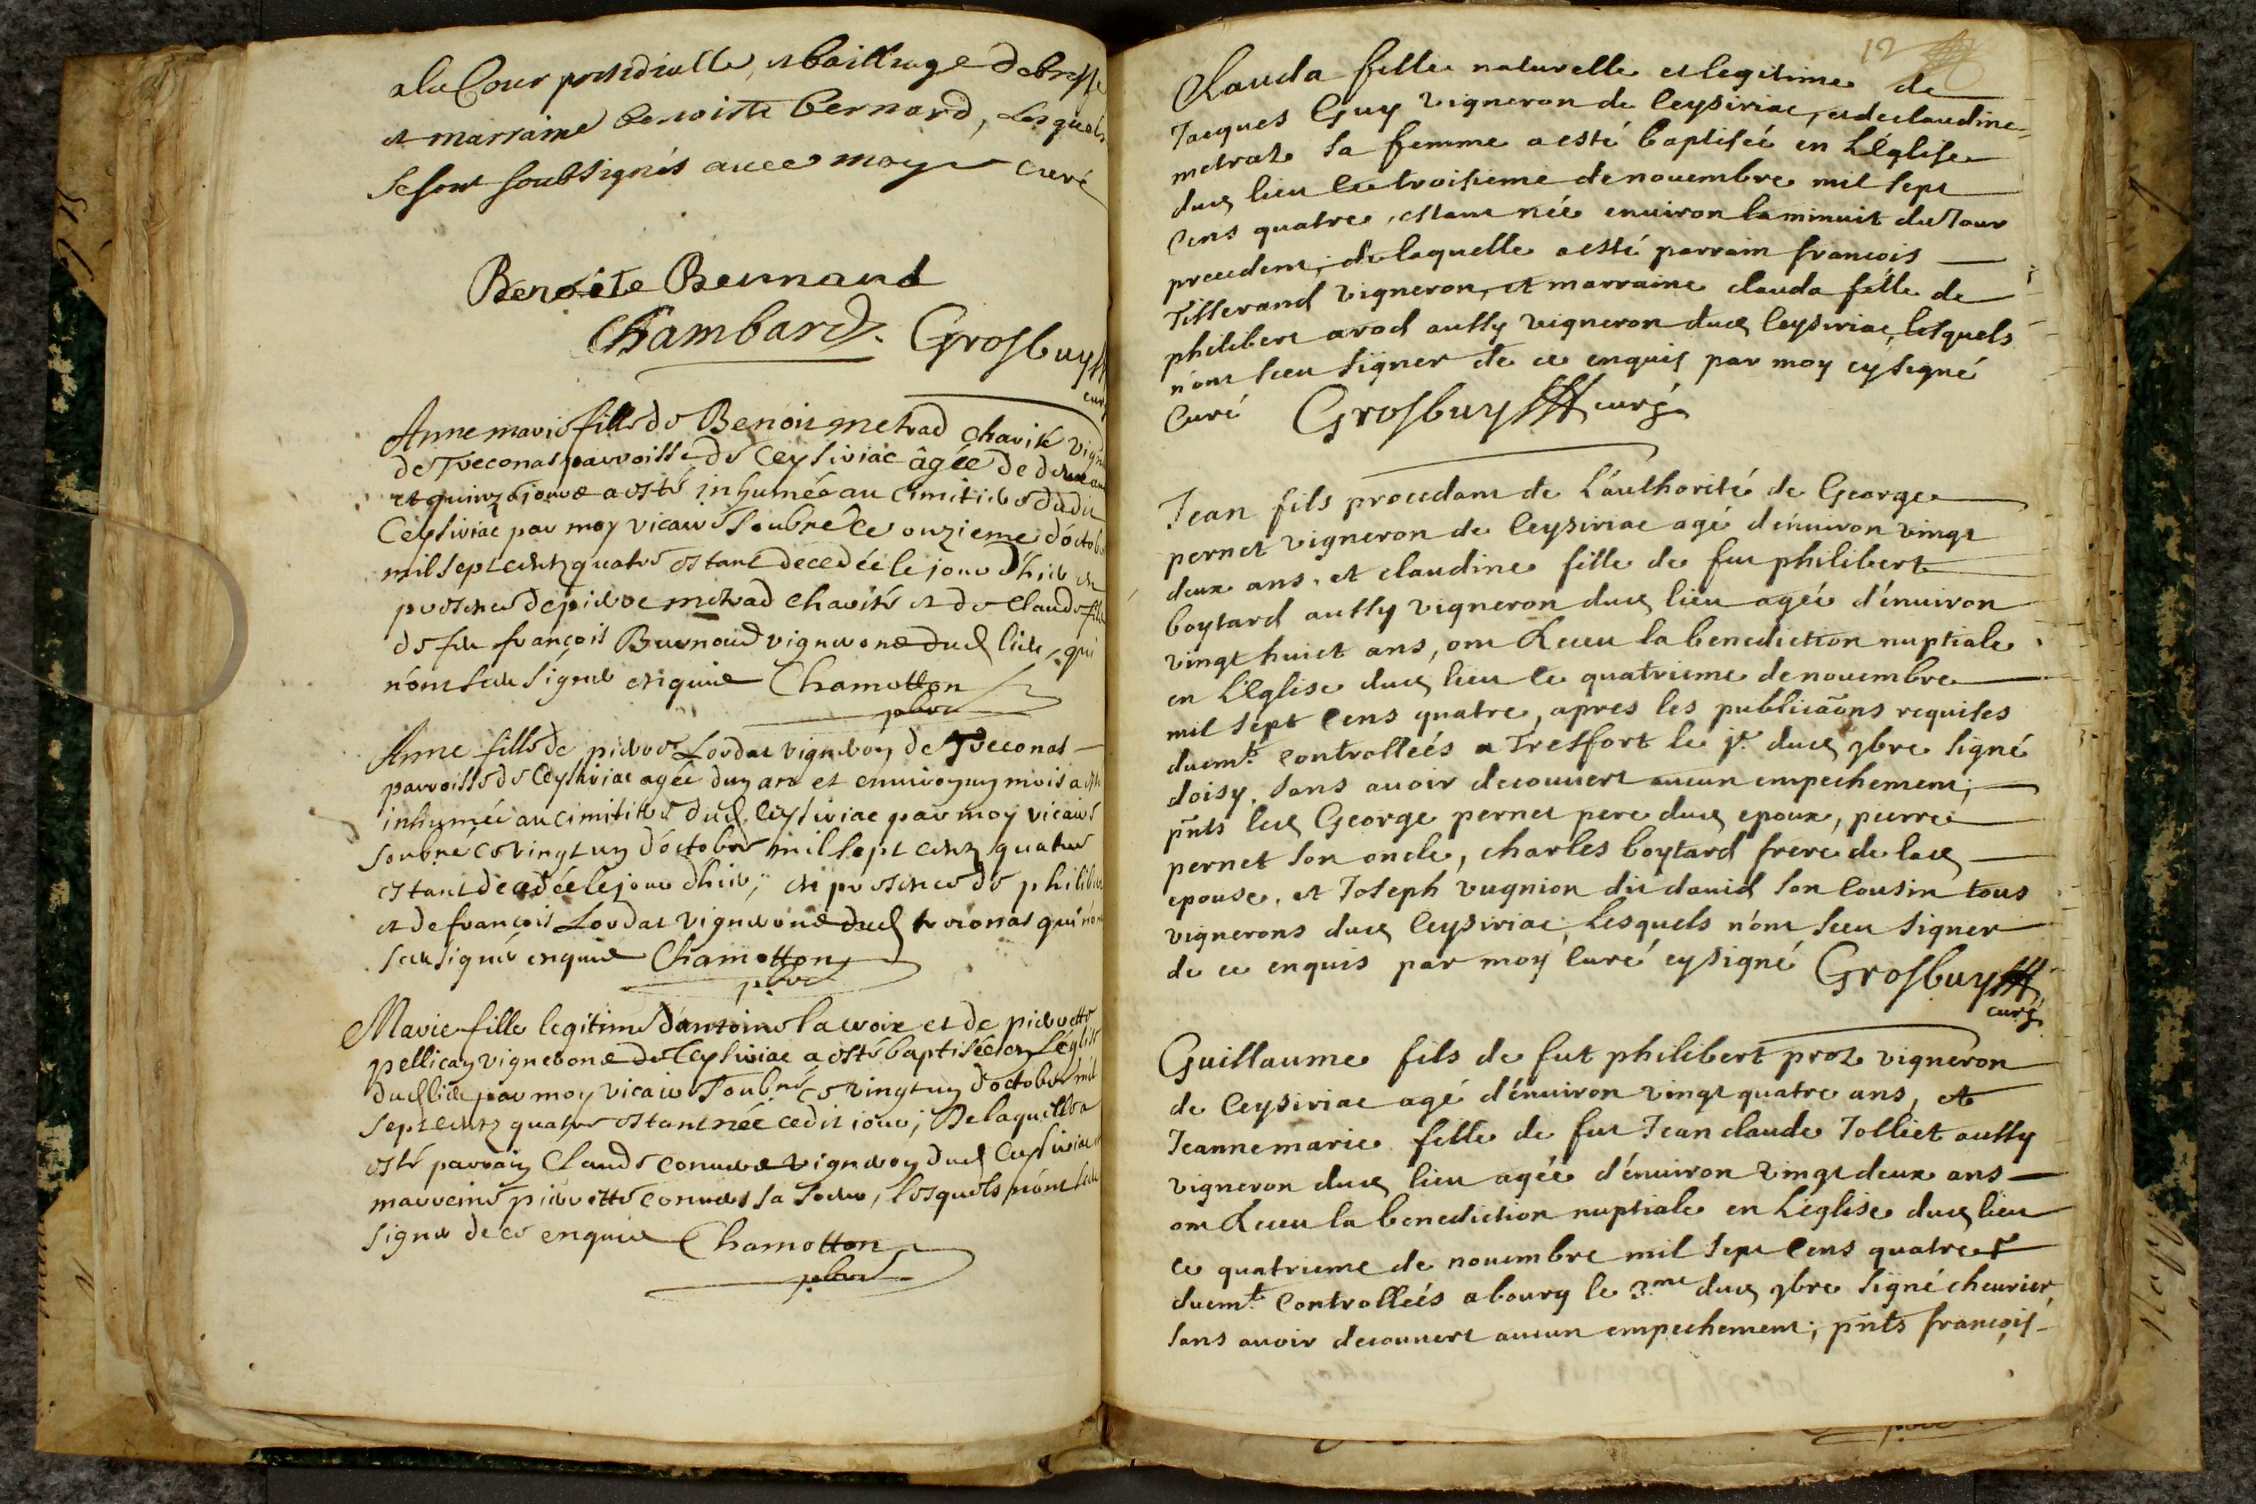 a la Cour presidialle, et bailliage de bresse
et marraine benoiste bernard, lesquels
se sont soubsignés avec moy curé
Benoite Bernaud
Chambard. Grosbuy
curé
Anne marie fille de Benoit metrad charité vign
de Treconas parroisse de Ceysiriac âgée de deux ans
et quinze jours a esté inhumée au cimitiere dudit
Ceysiriac par moy vicaire soubné le onzieme d'octobre
mil sept centz quatre estant decedée le jour d'hier en
presence de pierre metrad charité et de claude fils
de feu françois Burnoud vignerons dud lieu, qui
n'ont sceu signer enquis Chamotton
pbre
Anne fille de pierre Lordat vigneron de Treconas
parroisse de Ceysiriac agée d'un ans et environ un mois a esté
inhumée au cimitiere dud Ceysiriac par moy vicaire
soubné ce vingt un d'octobre mil sept centz quatre
estant decedée le jour d'hier, en presence de philibert
et de françois Lordat vignerons dud treconas qui n'ont
sceu signer enquis Chamotton
pbre
Marie fille legitime d'antoine lacroix et de pierrette
pellican vignerons de Ceysiriac a esté baptisée en L'église
dud lieu par moy vicaire soubné ce vingt un d'octobre mil
sept centz quatre estant née cedit jour; De laquelle a
esté parrain Claude convers vigneron dud Ceysiriac et
marreine pierrette convers sa soeur, lesquels n'ont sceu
signer de ce enquis Chamotton
pbre
12
Clauda fille naturelle et legitime de
Jacques Guy vigneron de Ceysiriac, et de claudine
metraz sa femme a esté baptisée en L'Eglise
dud lieu le troisieme de novembre mil sept
cens quatre, estant née environ la minuit du Jour
precedent; de laquelle a esté parrain francois
Tisserand vigneron, et marraine clauda fille de
philibert arod aussy vigneron dud Ceysiriac, lesquels
n'ont sceu signer de ce enquis par moy cy signé
Curé Grosbuy curé
Jean fils procedant de L'authorité de George
pernet vigneron de Ceysiriac agé d'environ vingt
deux ans, et claudine fille de fut philibert
boytard aussy vigneron dud lieu agée d'environ
vingt huict ans, ont Receu la benediction nuptiale
en L'Eglise dud lieu le quatrieme de novembre
mil sept cens quatre, apres les publicãons requises
duemt. controlleés a Tresfort le jr. dud 9bre signé
doisy. sans avoir decouvert aucun empechement;
pñts led George pernet pere dud epoux, pierre
pernet son oncle, charles boytard frere de lad
epouse, et Joseph vugnion dit david son cousin tous
vignerons dud Ceysiriac, Lesquels n'ont sceu signer
de ce enquis par moy curé cy signé Grosbuy
curé
Guillaume fils de fut philibert proz vigneron
de Ceysiriac agé d'environ vingt quatre ans, et
Jeannemarie fille de fut Jean claude Tolliet aussy
vigneron dud lieu agée d'environ vingt deux ans
ont Receu la benediction nuptiale en L'eglise dud lieu
ce quatrieme de novembre mil sept cens quatre
duemt. controlleés a bourg le 3.me dud 9bre signé chevrier,
sans avoir decouvert aucun empechement; pñts françois